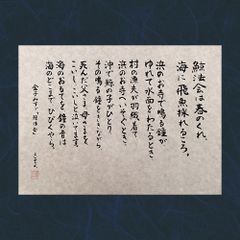 鯨法会は春のくれ、
海に飛魚採れるころ。
浜のお寺で鳴る鐘が
ゆれて水面をわたるとき、
村の漁夫が羽織着て
浜のお寺へいそぐとき、
沖で鯨の子がひとり
その鳴る鐘をききながら、
死んだ父さま、母さまを
こいし、こいしと泣いてます。
海のおもてを鐘の音は
海のどこまで、ひびくやら。
金子みすゞ